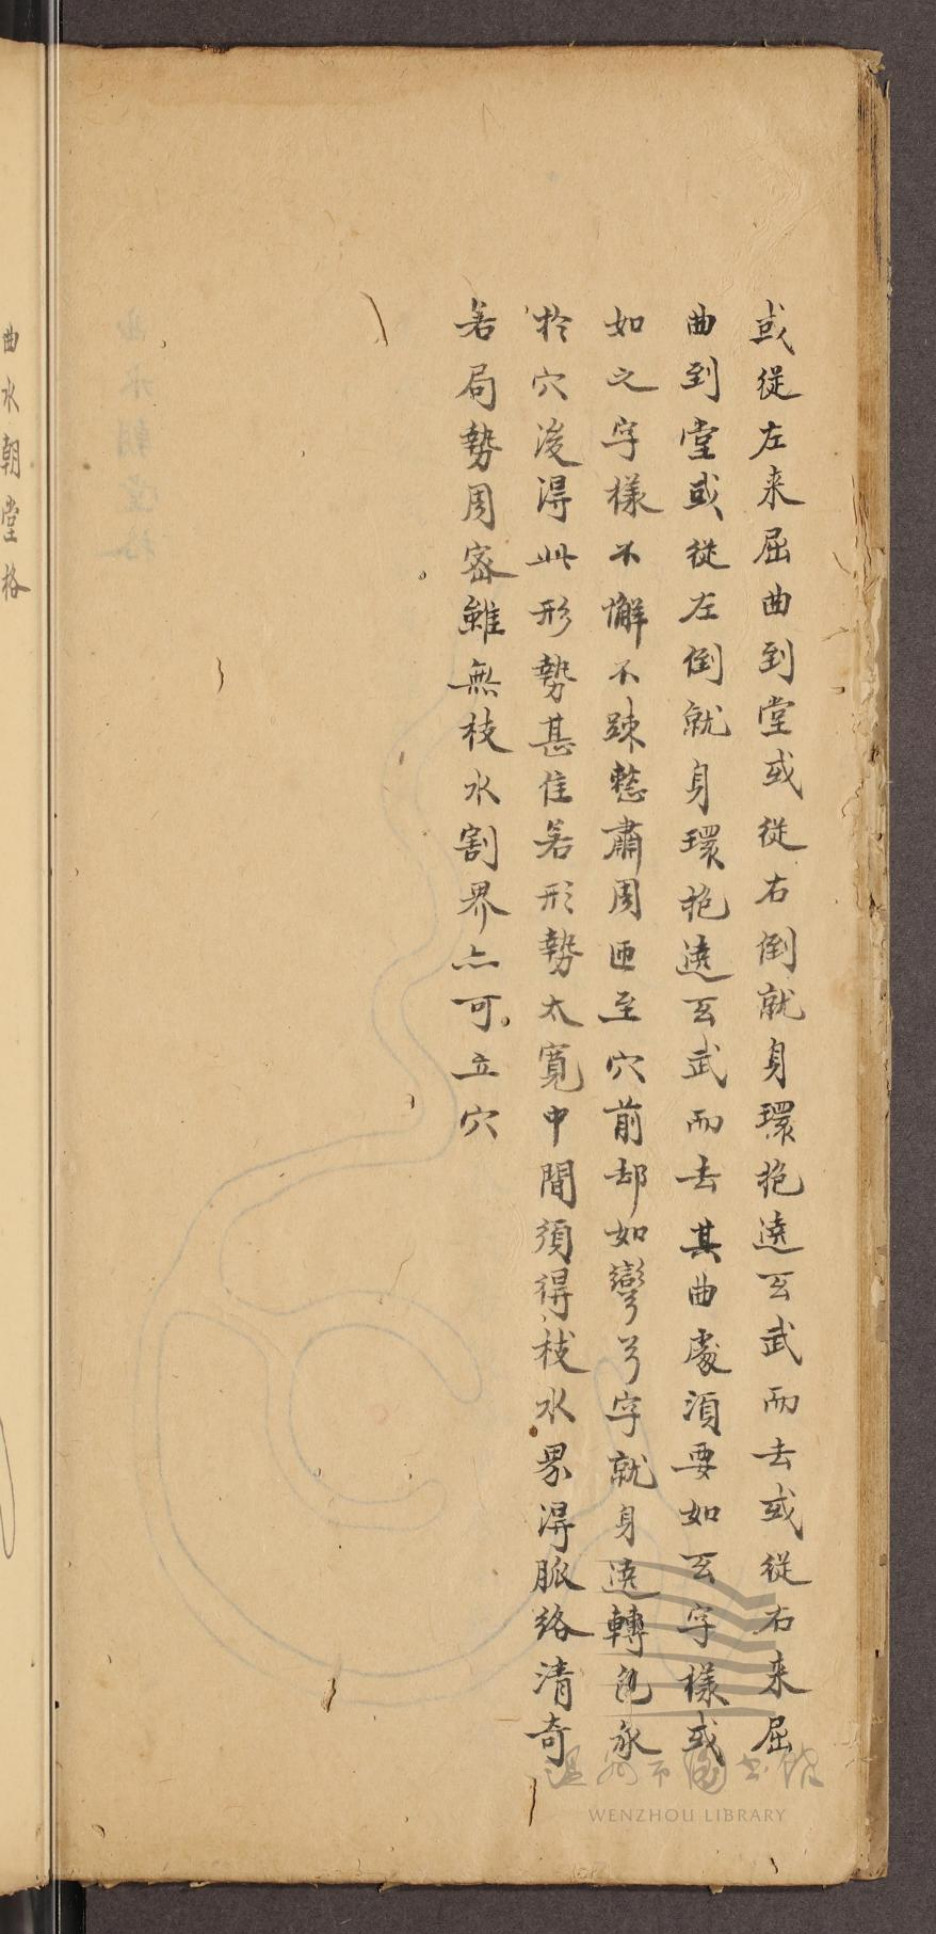 或從左来屈曲到堂或從右倒就身環抱遶玄武而去或從右来屈
曲到堂或從左倒就身環抱遶玄武而去其曲處湏要如玄字樣或
如之字樣不懈不踈整肅周匝至穴前却如彎弓字就身遶轉包承
扵穴後淂此形勢甚佳若形勢太寛中間須得枝水界淂脈絡清奇
若局勢周密雖無枝水割界亦可立穴
曲水朝堂格
温州市图书馆
WENZHOU LIBRARY